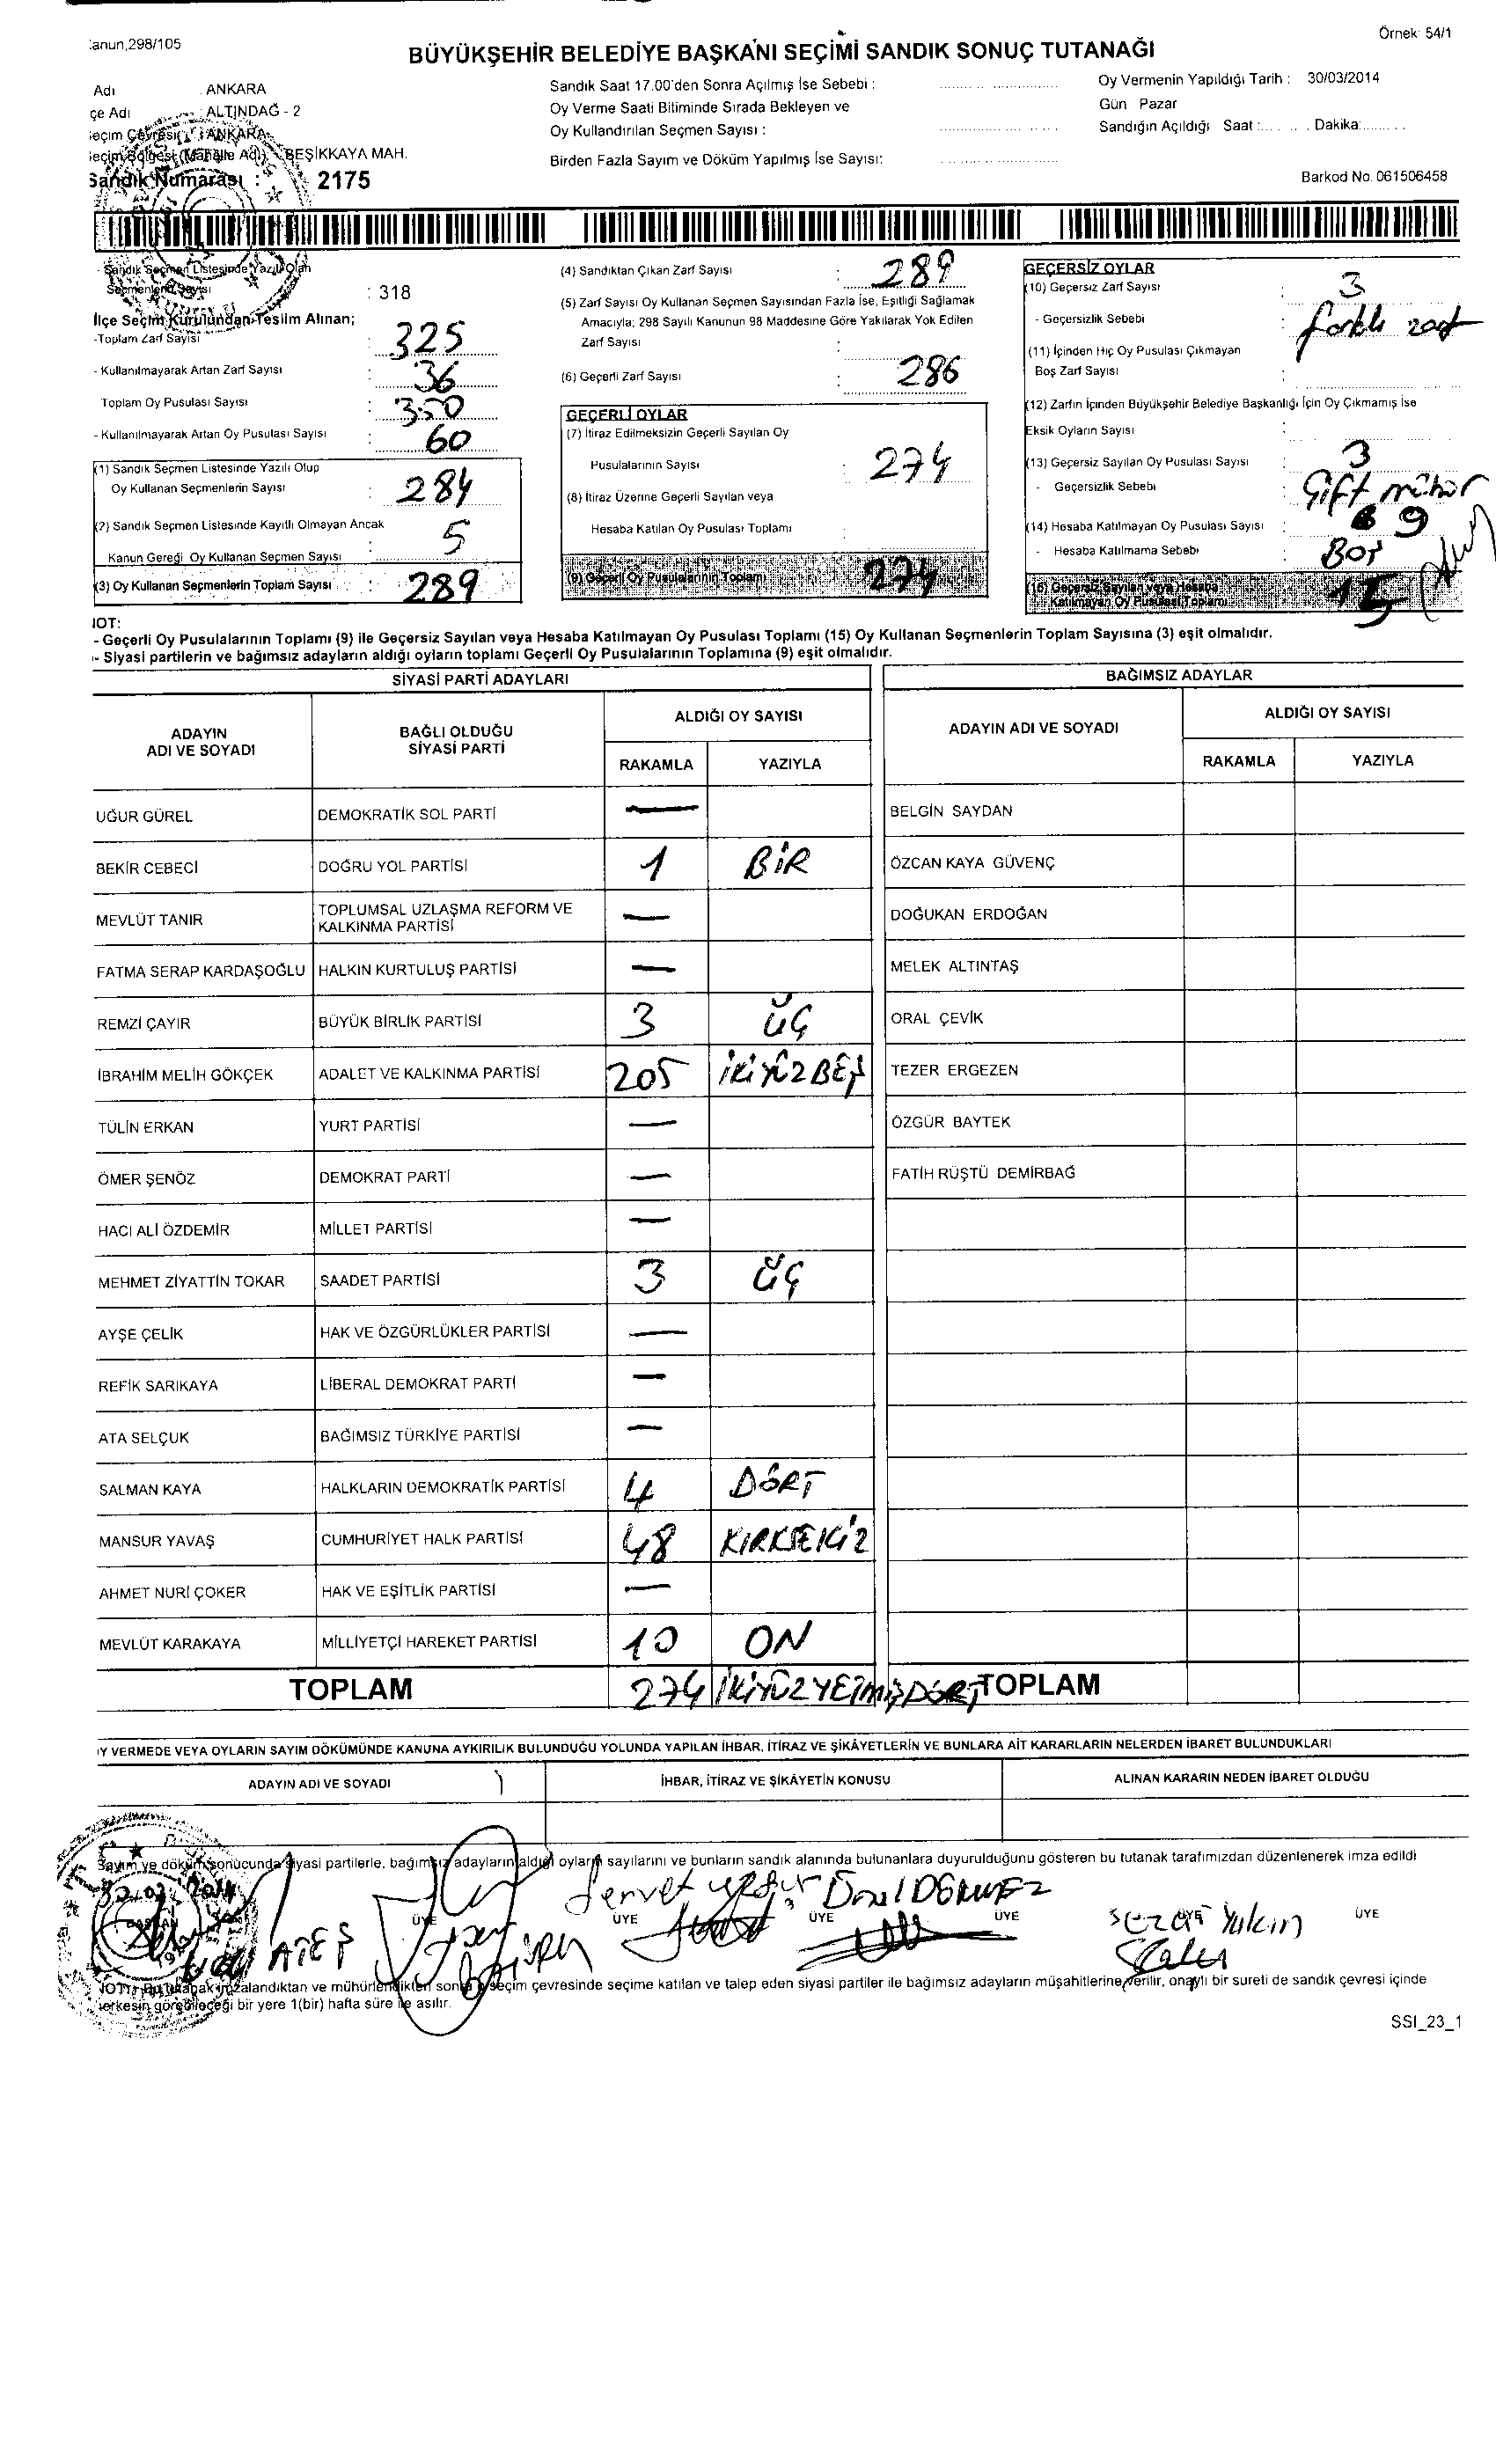 Örnek: 54/1
anun,298/105
BÜYÜKŞEHİR BELEDİYE BAŞKANI SEÇİMİ SANDIK SONUÇ TUTANAĞI
Adı : ANKARA
çe Adı : ALTINDAĞ - 2
eçim Çevresi : ANKARA
eçim Bölgesi (Mahalle Adı) : BEŞİKKAYA MAH.
Sandık Numarası : 2175
Sandık Saat 17.00'den Sonra Açılmış İse Sebebi :
Oy Verme Saati Bitiminde Sırada Bekleyen ve
Oy Kullandırılan Seçmen Sayısı :
Birden Fazla Sayım ve Döküm Yapılmış İse Sayısı:
Oy Vermenin Yapıldığı Tarih : 30/03/2014
Gün Pazar
Sandığın Açıldığı Saat : Dakika:
Barkod No. 061506458
- Sandık Seçmen Listesinde Yazılı Olan
Seçmenlerin Sayısı : 318
İlçe Seçim Kurulundan Teslim Alınan;
-Toplam Zarf Sayısı : 325
- Kullanılmayarak Artan Zarf Sayısı : 36
Toplam Oy Pusulası Sayısı : 350
- Kullanılmayarak Artan Oy Pusulası Sayısı : 60
(1) Sandık Seçmen Listesinde Yazılı Olup
Oy Kullanan Seçmenlerin Sayısı : 284
(2) Sandık Seçmen Listesinde Kayıtlı Olmayan Ancak
Kanun Gereği Oy Kullanan Seçmen Sayısı : 5
(3) Oy Kullanan Seçmenlerin Toplam Sayısı : 289
(4) Sandıktan Çıkan Zarf Sayısı : 289
(5) Zarf Sayısı Oy Kullanan Seçmen Sayısından Fazla İse, Eşitliği Sağlamak
Amacıyla; 298 Sayılı Kanunun 98 Maddesine Göre Yakılarak Yok Edilen
Zarf Sayısı :
(6) Geçerli Zarf Sayısı : 286
GEÇERLİ OYLAR
(7) İtiraz Edilmeksizin Geçerli Sayılan Oy
Pusulalarının Sayısı : 274
(8) İtiraz Üzerine Geçerli Sayılan veya
Hesaba Katılan Oy Pusulası Toplamı :
(9) Geçerli Oy Pusulalarının Toplamı 274
GEÇERSİZ OYLAR
(10) Geçersiz Zarf Sayısı : 3
- Geçersizlik Sebebi : farklı zarf
(11) İçinden Hiç Oy Pusulası Çıkmayan
Boş Zarf Sayısı :
(12) Zarfın İçinden Büyükşehir Belediye Başkanlığı İçin Oy Çıkmamış İse
Eksik Oyların Sayısı :
(13) Geçersiz Sayılan Oy Pusulası Sayısı : 3
- Geçersizlik Sebebi : Çift mühür
(14) Hesaba Katılmayan Oy Pusulası Sayısı : 9
- Hesaba Katılmama Sebebi : BOŞ
(15) Geçersiz Sayılan veya Hesaba
Katılmayan Oy Pusulası Toplamı 15
NOT:
- Geçerli Oy Pusulalarının Toplamı (9) ile Geçersiz Sayılan veya Hesaba Katılmayan Oy Pusulası Toplamı (15) Oy Kullanan Seçmenlerin Toplam Sayısına (3) eşit olmalıdır.
- Siyasi partilerin ve bağımsız adayların aldığı oyların toplamı Geçerli Oy Pusulalarının Toplamına (9) eşit olmalıdır.
SİYASİ PARTİ ADAYLARI
ADAYIN ADI VE SOYADI BAĞLI OLDUĞU SİYASİ PARTİ ALDIĞI OY SAYISI
RAKAMLA YAZIYLA
UĞUR GÜREL DEMOKRATİK SOL PARTİ —
BEKİR CEBECİ DOĞRU YOL PARTİSİ 1 BİR
MEVLÜT TANIR TOPLUMSAL UZLAŞMA REFORM VE KALKINMA PARTİSİ —
FATMA SERAP KARDAŞOĞLU HALKIN KURTULUŞ PARTİSİ —
REMZİ ÇAYIR BÜYÜK BİRLİK PARTİSİ 3 ÜÇ
İBRAHİM MELİH GÖKÇEK ADALET VE KALKINMA PARTİSİ 205 İKİYÜZBEŞ
TÜLİN ERKAN YURT PARTİSİ —
ÖMER ŞENÖZ DEMOKRAT PARTİ —
HACI ALİ ÖZDEMİR MİLLET PARTİSİ —
MEHMET ZİYATTİN TOKAR SAADET PARTİSİ 3 ÜÇ
AYŞE ÇELİK HAK VE ÖZGÜRLÜKLER PARTİSİ —
REFİK SARIKAYA LİBERAL DEMOKRAT PARTİ —
ATA SELÇUK BAĞIMSIZ TÜRKİYE PARTİSİ —
SALMAN KAYA HALKLARIN DEMOKRATİK PARTİSİ 4 DÖRT
MANSUR YAVAŞ CUMHURİYET HALK PARTİSİ 48 KIRKSEKİZ
AHMET NURİ ÇOKER HAK VE EŞİTLİK PARTİSİ —
MEVLÜT KARAKAYA MİLLİYETÇİ HAREKET PARTİSİ 10 ON
TOPLAM 274 İKİYÜZYETMİŞDÖRT
BAĞIMSIZ ADAYLAR
ADAYIN ADI VE SOYADI ALDIĞI OY SAYISI
RAKAMLA YAZIYLA
BELGİN SAYDAN
ÖZCAN KAYA GÜVENÇ
DOĞUKAN ERDOĞAN
MELEK ALTINTAŞ
ORAL ÇEVİK
TEZER ERGEZEN
ÖZGÜR BAYTEK
FATİH RÜŞTÜ DEMİRBAĞ
TOPLAM
Y VERMEDE VEYA OYLARIN SAYIM DÖKÜMÜNDE KANUNA AYKIRILIK BULUNDUĞU YOLUNDA YAPILAN İHBAR, İTİRAZ VE ŞİKÂYETLERİN VE BUNLARA AİT KARARLARIN NELERDEN İBARET BULUNDUKLARI
ADAYIN ADI VE SOYADI İHBAR, İTİRAZ VE ŞİKÂYETİN KONUSU ALINAN KARARIN NEDEN İBARET OLDUĞU
Sayım ve döküm sonucunda siyasi partilerle, bağımsız adayların aldığı oyların sayılarını ve bunların sandık alanında bulunanlara duyurulduğunu gösteren bu tutanak tarafımızdan düzenlenerek imza edildi
BAŞKAN ÜYE ÜYE ÜYE ÜYE ÜYE ÜYE
ATEŞ Servet Sezai Yalçın
NOT: Bu tutanak imzalandıktan ve mühürlendikten sonra seçim çevresinde seçime katılan ve talep eden siyasi partiler ile bağımsız adayların müşahitlerine verilir, onaylı bir sureti de sandık çevresi içinde
herkesin görebileceği bir yere 1(bir) hafta süre ile asılır.
SSI_23_1